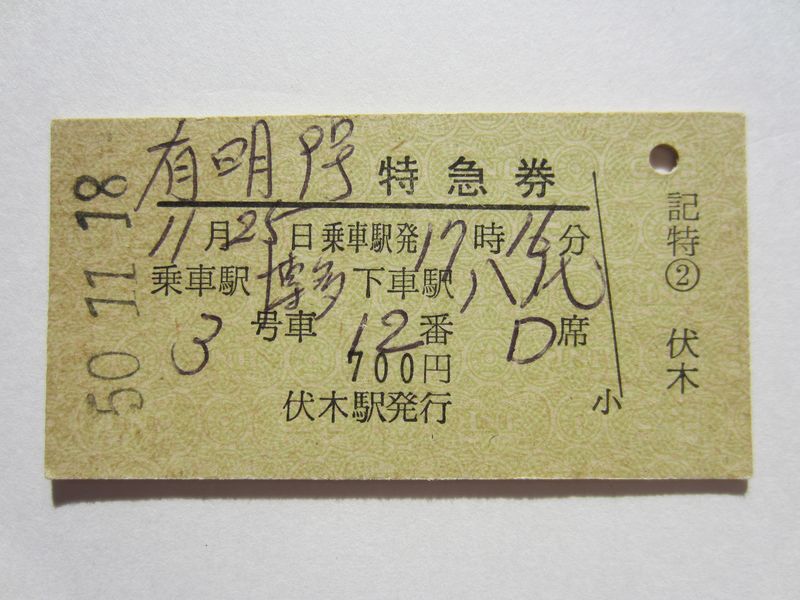 50.11.18
有明号 特急券
11月25日乗車駅発17時16分
乗車駅 博多 下車駅 八代
3 号車 12番 D席
700円
伏木駅発行
小
記特② 伏木